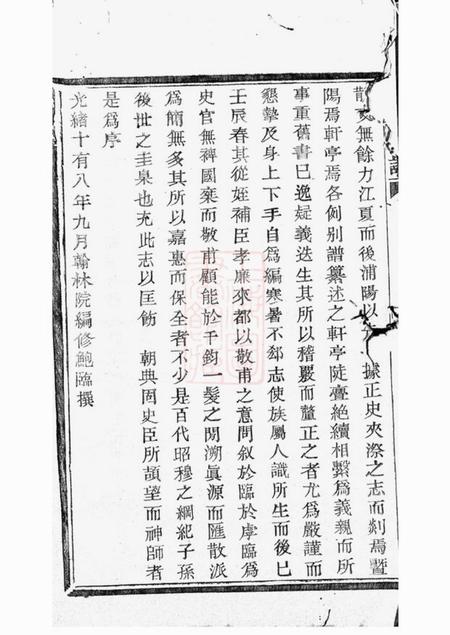 散 無餘力江夏而後浦陽以 據正史夾漈之志而剡焉暨
陽焉軒亭焉各例別譜纂述之軒亭陡亹絶續相繫爲義親而所
事重舊書已逸疑義迭生其所以稽覈而釐正之者尤爲嚴謹而
懇摯及身上下手自爲編寒暑不郄志使族屬人識所生而後已
壬辰春其從姪補臣孝廉來都以敬甫之意問叙於臨於虖臨爲
史官無裨國棄而敬甫顧能於千鈞一髮之閒溯眞源而匯散派
爲簡無多其所以嘉惠而保全者不少是百代昭穆之綱紀子孫
後世之圭臬也充此志以匡飭 朝典固史臣所頡望而神師者
是爲序
光緒十有八年九月翰林院編修鮑臨撰